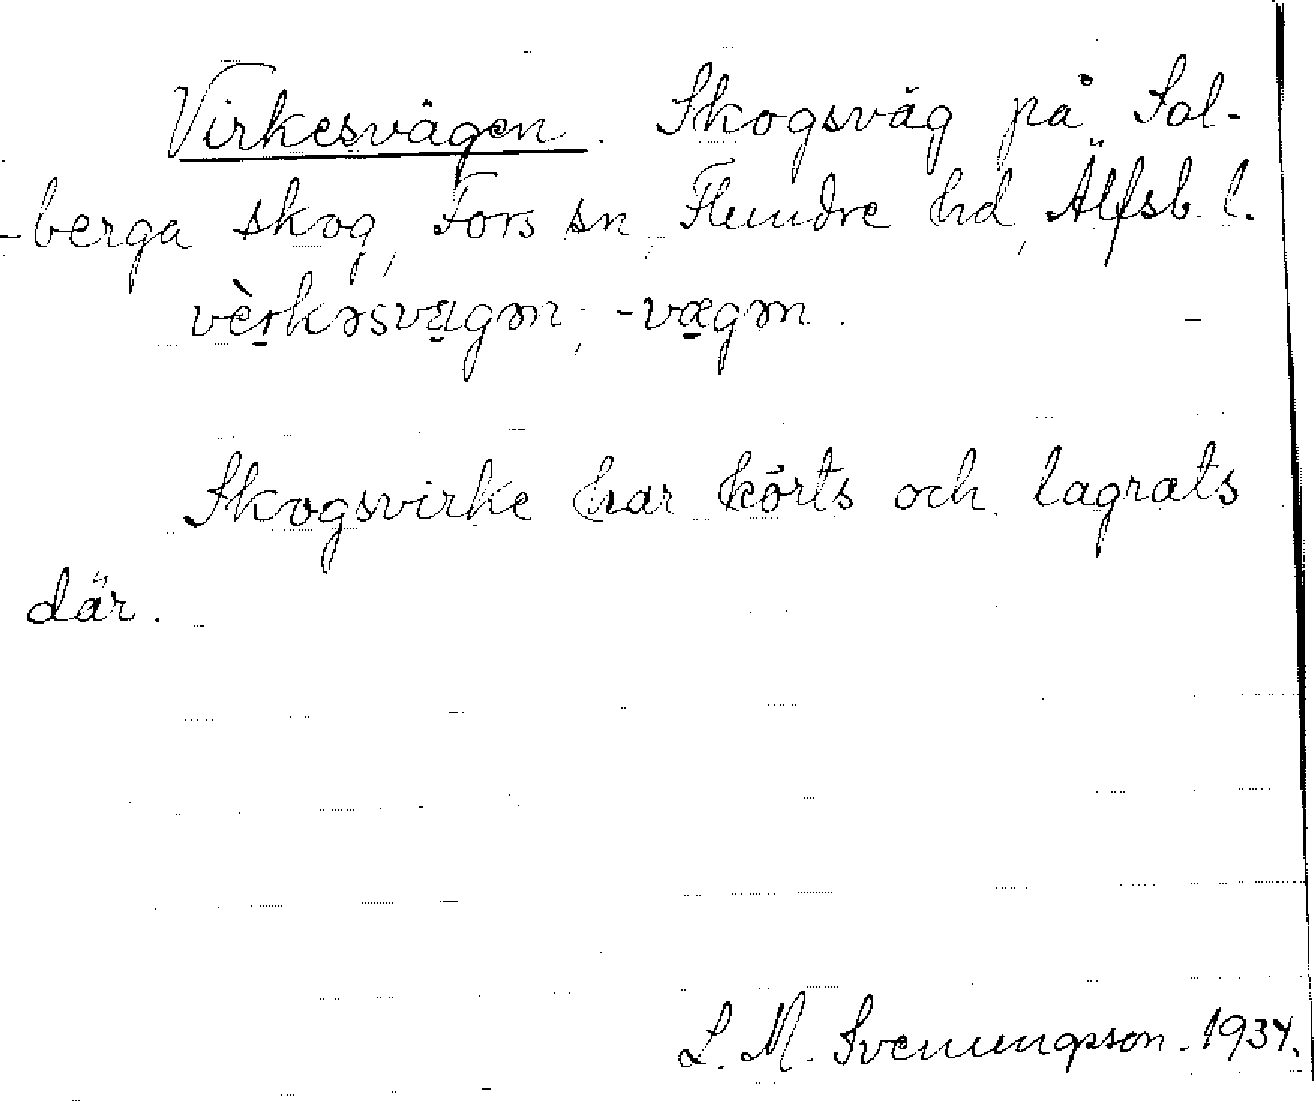 Virkesvägen. Skogsväg på Sal-
-berga skog, Fors sn, Flundre hd, Älfsb. l.
vèrkəsvægən, -vægən.
Skogsvirke har körts och lagrats
där.
L. M. Svenungsson. 1934.